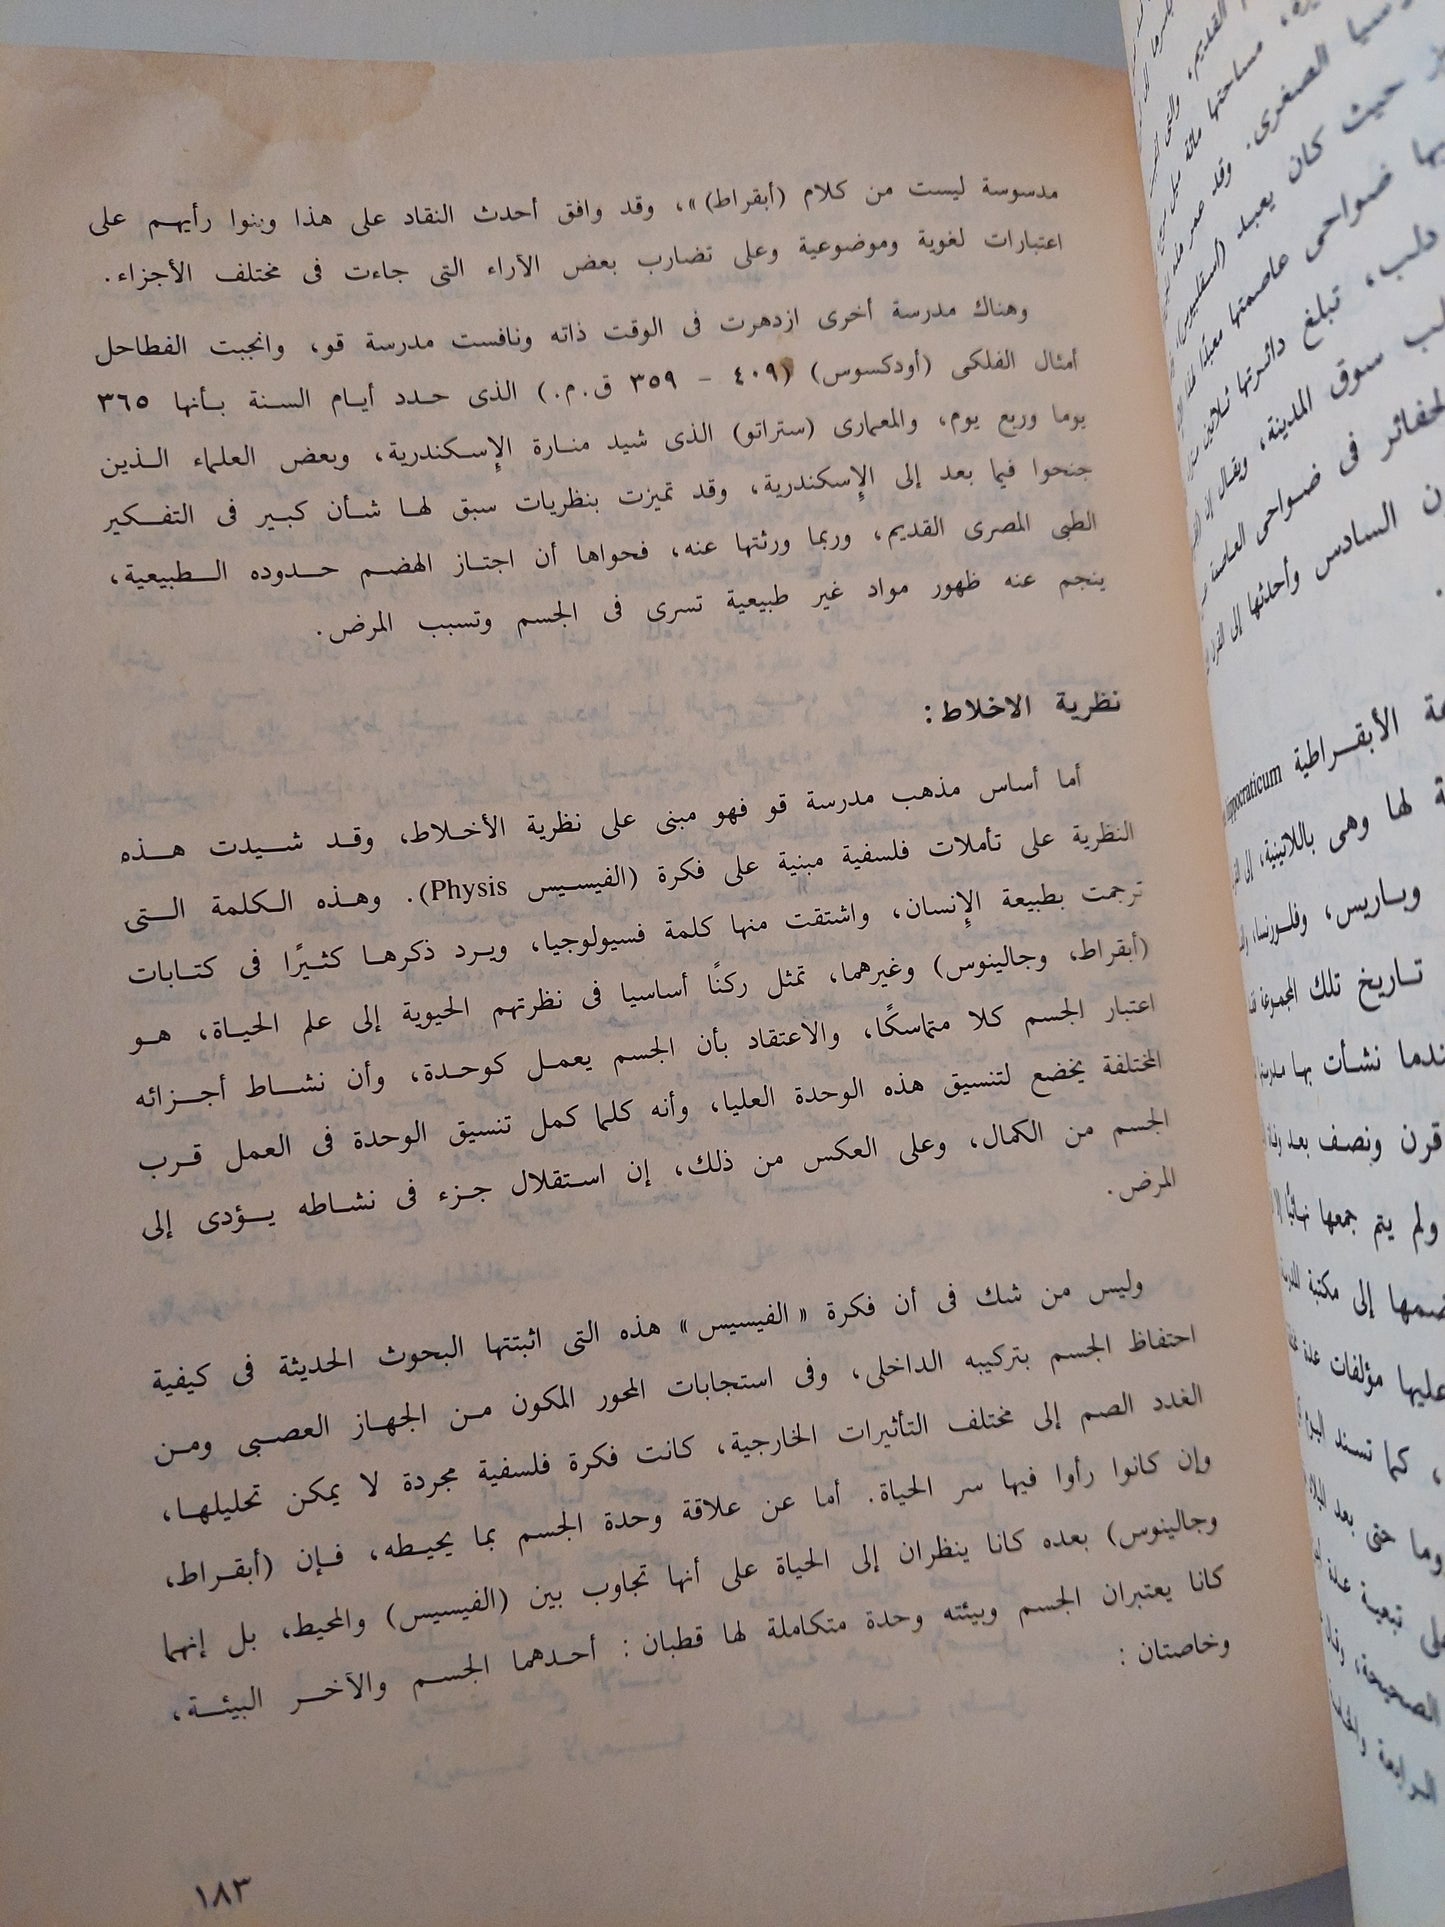 مدسوسة ليست من كلام (أبقراط)»، وقد وافق أحدث النقاد على هذا وبنوا رأيهم على
اعتبارات لغوية وموضوعية وعلى تضارب بعض الآراء التى جاءت فى مختلف الأجزاء.
وهناك مدرسة أخرى ازدهرت فى الوقت ذاته ونافست مدرسة قو، وانجبت الفطاحل
أمثال الفلكى (أودكسوس) (٤٠٩ - ٣٥٩ ق.م.) الذى حدد أيام السنة بأنها ٣٦٥
يوما وربع يوم، والمعمارى (ستراتو) الذى شيد منارة الإسكندرية، وبعض العلماء الذين
جنحوا فيما بعد إلى الإسكندرية، وقد تميزت بنظريات سبق لها شأن كبير فى التفكير
الطبى المصرى القديم، وربما ورثتها عنه، فحواها أن اجتاز الهضم حدوده الطبيعية،
ينجم عنه ظهور مواد غير طبيعية تسرى فى الجسم وتسبب المرض.
نظرية الاخلاط:
أما أساس مذهب مدرسة قو فهو مبنى على نظرية الأخلاط، وقد شيدت هذه
النظرية على تأملات فلسفية مبنية على فكرة (الفيسيس Physis). وهذه الكلمة التى
ترجمت بطبيعة الإنسان، واشتقت منها كلمة فسيولوجيا، ويرد ذكرها كثيرًا فى كتابات
(أبقراط، وجالينوس) وغيرهما، تمثل ركنًا أساسيا فى نظرتهم الحيوية إلى علم الحياة، هو
اعتبار الجسم كلا متماسكًا، والاعتقاد بأن الجسم يعمل كوحدة، وأن نشاط أجزائه
المختلفة يخضع لتنسيق هذه الوحدة العليا، وأنه كلما كمل تنسيق الوحدة فى العمل قرب
الجسم من الكمال، وعلى العكس من ذلك، إن استقلال جزء فى نشاطه يؤدى إلى
المرض.
وليس من شك فى أن فكرة «الفيسيس» هذه التى اثبتتها البحوث الحديثة فى كيفية
احتفاظ الجسم بتركيبه الداخلى، وفى استجابات المحور المكون من الجهاز العصبى ومن
الغدد الصم إلى مختلف التأثيرات الخارجية، كانت فكرة فلسفية مجردة لا يمكن تحليلها،
وإن كانوا رأوا فيها سر الحياة. أما عن علاقة وحدة الجسم بما يحيطه، فإن (أبقراط،
وجالينوس) بعده كانا ينظران إلى الحياة على أنها تجاوب بين (الفيسيس) والمحيط، بل إنهما
كانا يعتبران الجسم وبيئته وحدة متكاملة لها قطبان: أحدهما الجسم والآخر البيئة،
وخاصتان:
١٨٣
سيا الصغرى. وقد
حيث كان يعبد (اسقليبوس)
ضواحى عاصمتها معبدًا
دلب، تبلغ دائرتها ثلاثين
سوق المدينة، ويقال إن
لحفائر فى ضواحى العاصمة
السادس وأحدثها إلى القرن
الأبقراطية
لها وهى باللاتينية، إلى
وباريس، وفلورنسا،
تاريخ تلك المجموعة
ندما نشأت بها مدرسة
قرن ونصف بعد
ولم يتم جمعها نهائيًا
ضمها إلى مكتبة
عليها مؤلفات عدة
، كما تسند اليوم
وما حتى بعد
الصحيحة،